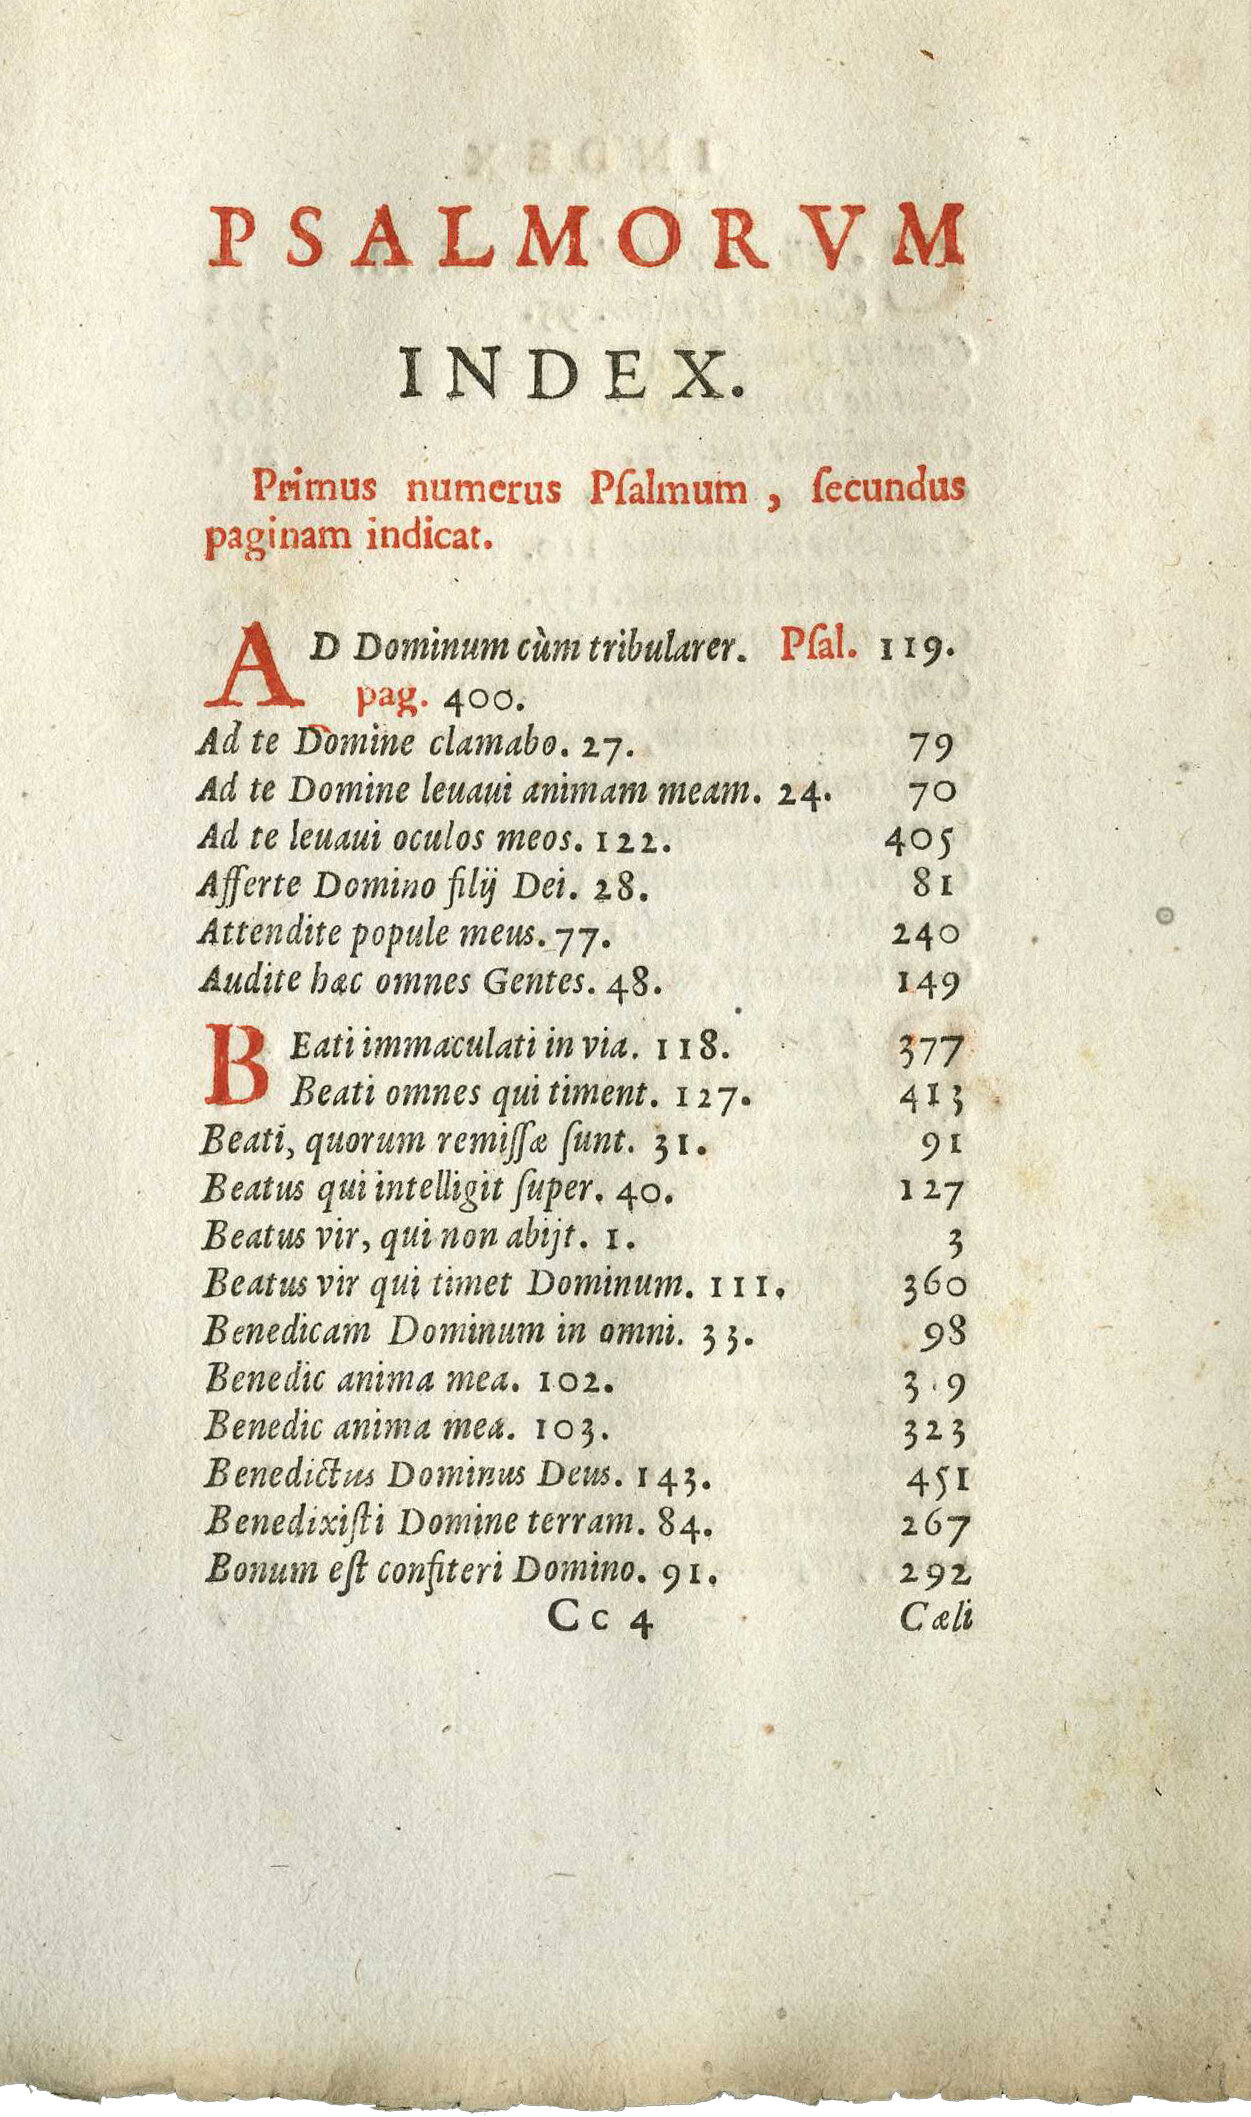 PSALMORVM
INDEX.
Primus numerus Pſalmum, ſecundus
paginam indicat.
AD Dominum cùm tribularer. Pſal. 119.
pag. 400.
Ad te Domine clamabo. 27. 79
Ad te Domine leuaui animam meam. 24. 70
Ad te leuaui oculos meos. 122. 405
Afferte Domino filij Dei. 28. 81
Attendite popule meus. 77. 240
Audite hæc omnes Gentes. 48. 149
BEati immaculati in via. 118. 377
Beati omnes qui timent. 127. 413
Beati, quorum remiſſæ ſunt. 31. 91
Beatus qui intelligit ſuper. 40. 127
Beatus vir, qui non abijt. 1. 3
Beatus vir qui timet Dominum. 111. 360
Benedicam Dominum in omni. 33. 98
Benedic anima mea. 102.
Benedic anima mea. 103. 323
Benedictus Dominus Deus. 143. 451
Benedixiſti Domine terram. 84. 267
Bonum eſt confiteri Domino. 91. 292
Cc 4 Cæli